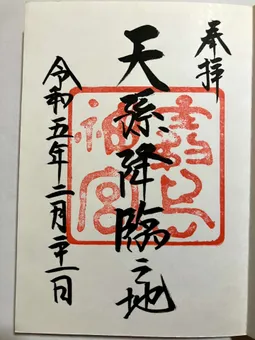 奉拝
天孫降臨之地
令和五年二月二十一日